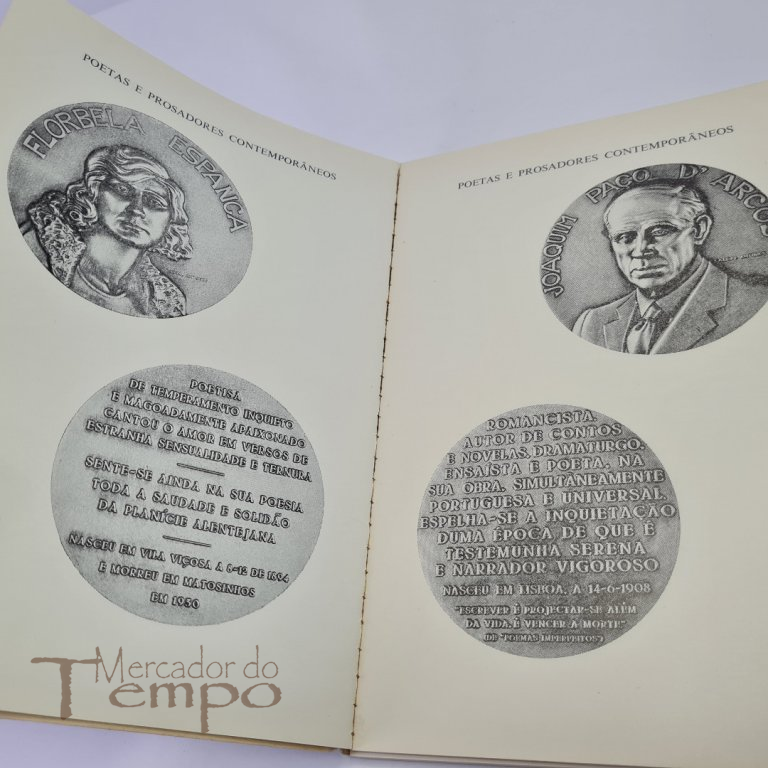 POETAS E PROSADORES CONTEMPORÂNEOS
FLORBELA ESPANCA
POETISA
DE TEMPERAMENTO INQUIETO
E MAGOADAMENTE APAIXONADO
CANTOU O AMOR EM VERSOS DE
ESTRANHA SENSUALIDADE E TERNURA
SENTE-SE AINDA NA SUA POESIA
TODA A SAUDADE E SOLIDÃO
DA PLANÍCIE ALENTEJANA
NASCEU EM VILA VIÇOSA A 8-12 DE 1894
E MORREU EM MATOSINHOS
EM 1930
POETAS E PROSADORES CONTEMPORÂNEOS
JOAQUIM PAÇO D'ARCOS
ROMANCISTA,
AUTOR DE CONTOS
E NOVELAS, DRAMATURGO,
ENSAÍSTA E POETA, NA
SUA OBRA, SIMULTANEAMENTE
PORTUGUESA E UNIVERSAL,
ESPELHA-SE A INQUIETAÇÃO
DUMA ÉPOCA DE QUE É
TESTEMUNHA SERENA
E NARRADOR VIGOROSO
NASCEU EM LISBOA, A 14-6-1908
"ESCREVER É PROJECTAR-SE ALÉM
DA VIDA, É VENCER A MORTE."
(DE "POEMAS IMPERFEITOS")
Mercador do
Tempo